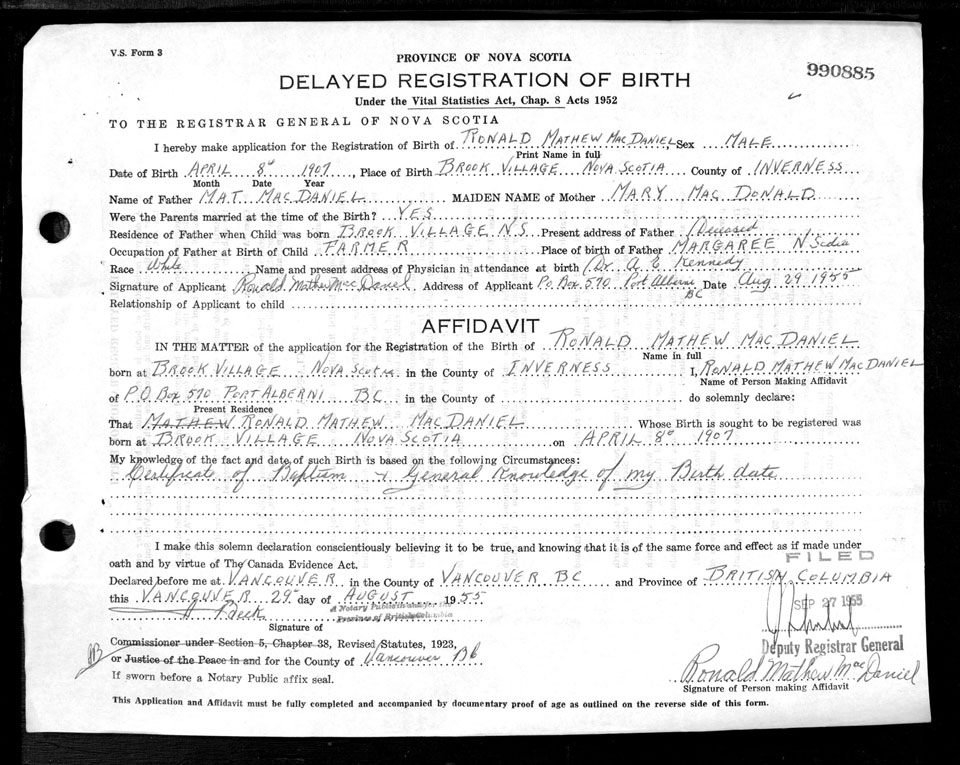 V.S. Form 3
PROVINCE OF NOVA SCOTIA
990885
DELAYED REGISTRATION OF BIRTH
Under the Vital Statistics Act, Chap. 8 Acts 1952
TO THE REGISTRAR GENERAL OF NOVA SCOTIA
I hereby make application for the Registration of Birth of RONALD MATHEW MACDANIEL Sex MALE
Print Name in full
Date of Birth APRIL 8th 1907, Place of Birth BROOK VILLAGE NOVA SCOTIA County of INVERNESS
Month Date Year
Name of Father MAT MACDANIEL MAIDEN NAME of Mother MARY MACDONALD
Were the Parents married at the time of the Birth? YES
Residence of Father when Child was born BROOK VILLAGE N.S. Present address of Father Deceased
Occupation of Father at Birth of Child FARMER Place of birth of Father MARGAREE N Scotia
Race White Name and present address of Physician in attendance at birth Dr. A E Kennedy
Signature of Applicant Ronald Mathew MacDaniel Address of Applicant P.O. Box 570 Port Alberni BC Date Aug 29 1955
Relationship of Applicant to child
AFFIDAVIT
IN THE MATTER of the application for the Registration of the Birth of RONALD MATHEW MACDANIEL
Name in full
born at BROOK VILLAGE NOVA SCOTIA in the County of INVERNESS I, RONALD MATHEW MACDANIEL
Name of Person Making Affidavit
of P.O Box 570 PORT ALBERNI BC in the County of do solemnly declare:
Present Residence
That MATHEW RONALD MATHEW MACDANIEL Whose Birth is sought to be registered was
born at BROOK VILLAGE NOVA SCOTIA on APRIL 8th 1907
My knowledge of the fact and date of such Birth is based on the following Circumstances:
Certificate of Baptism & General Knowledge of my Birth date
I make this solemn declaration conscientiously believing it to be true, and knowing that it is of the same force and effect as if made under
oath and by virtue of The Canada Evidence Act.
FILED
Declared before me at VANCOUVER in the County of VANCOUVER BC and Province of BRITISH COLUMBIA
this VANCOUVER 29th day of AUGUST 1955
SEP 27 1955
A Notary Public in and for the
Province of British Columbia
Beck
Signature of
Deputy Registrar General
Commissioner under Section 5, Chapter 38, Revised Statutes, 1923,
or Justice of the Peace in and for the County of Vancouver BC
If sworn before a Notary Public affix seal.
Ronald Mathew MacDaniel
Signature of Person making Affidavit
This Application and Affidavit must be fully completed and accompanied by documentary proof of age as outlined on the reverse side of this form.